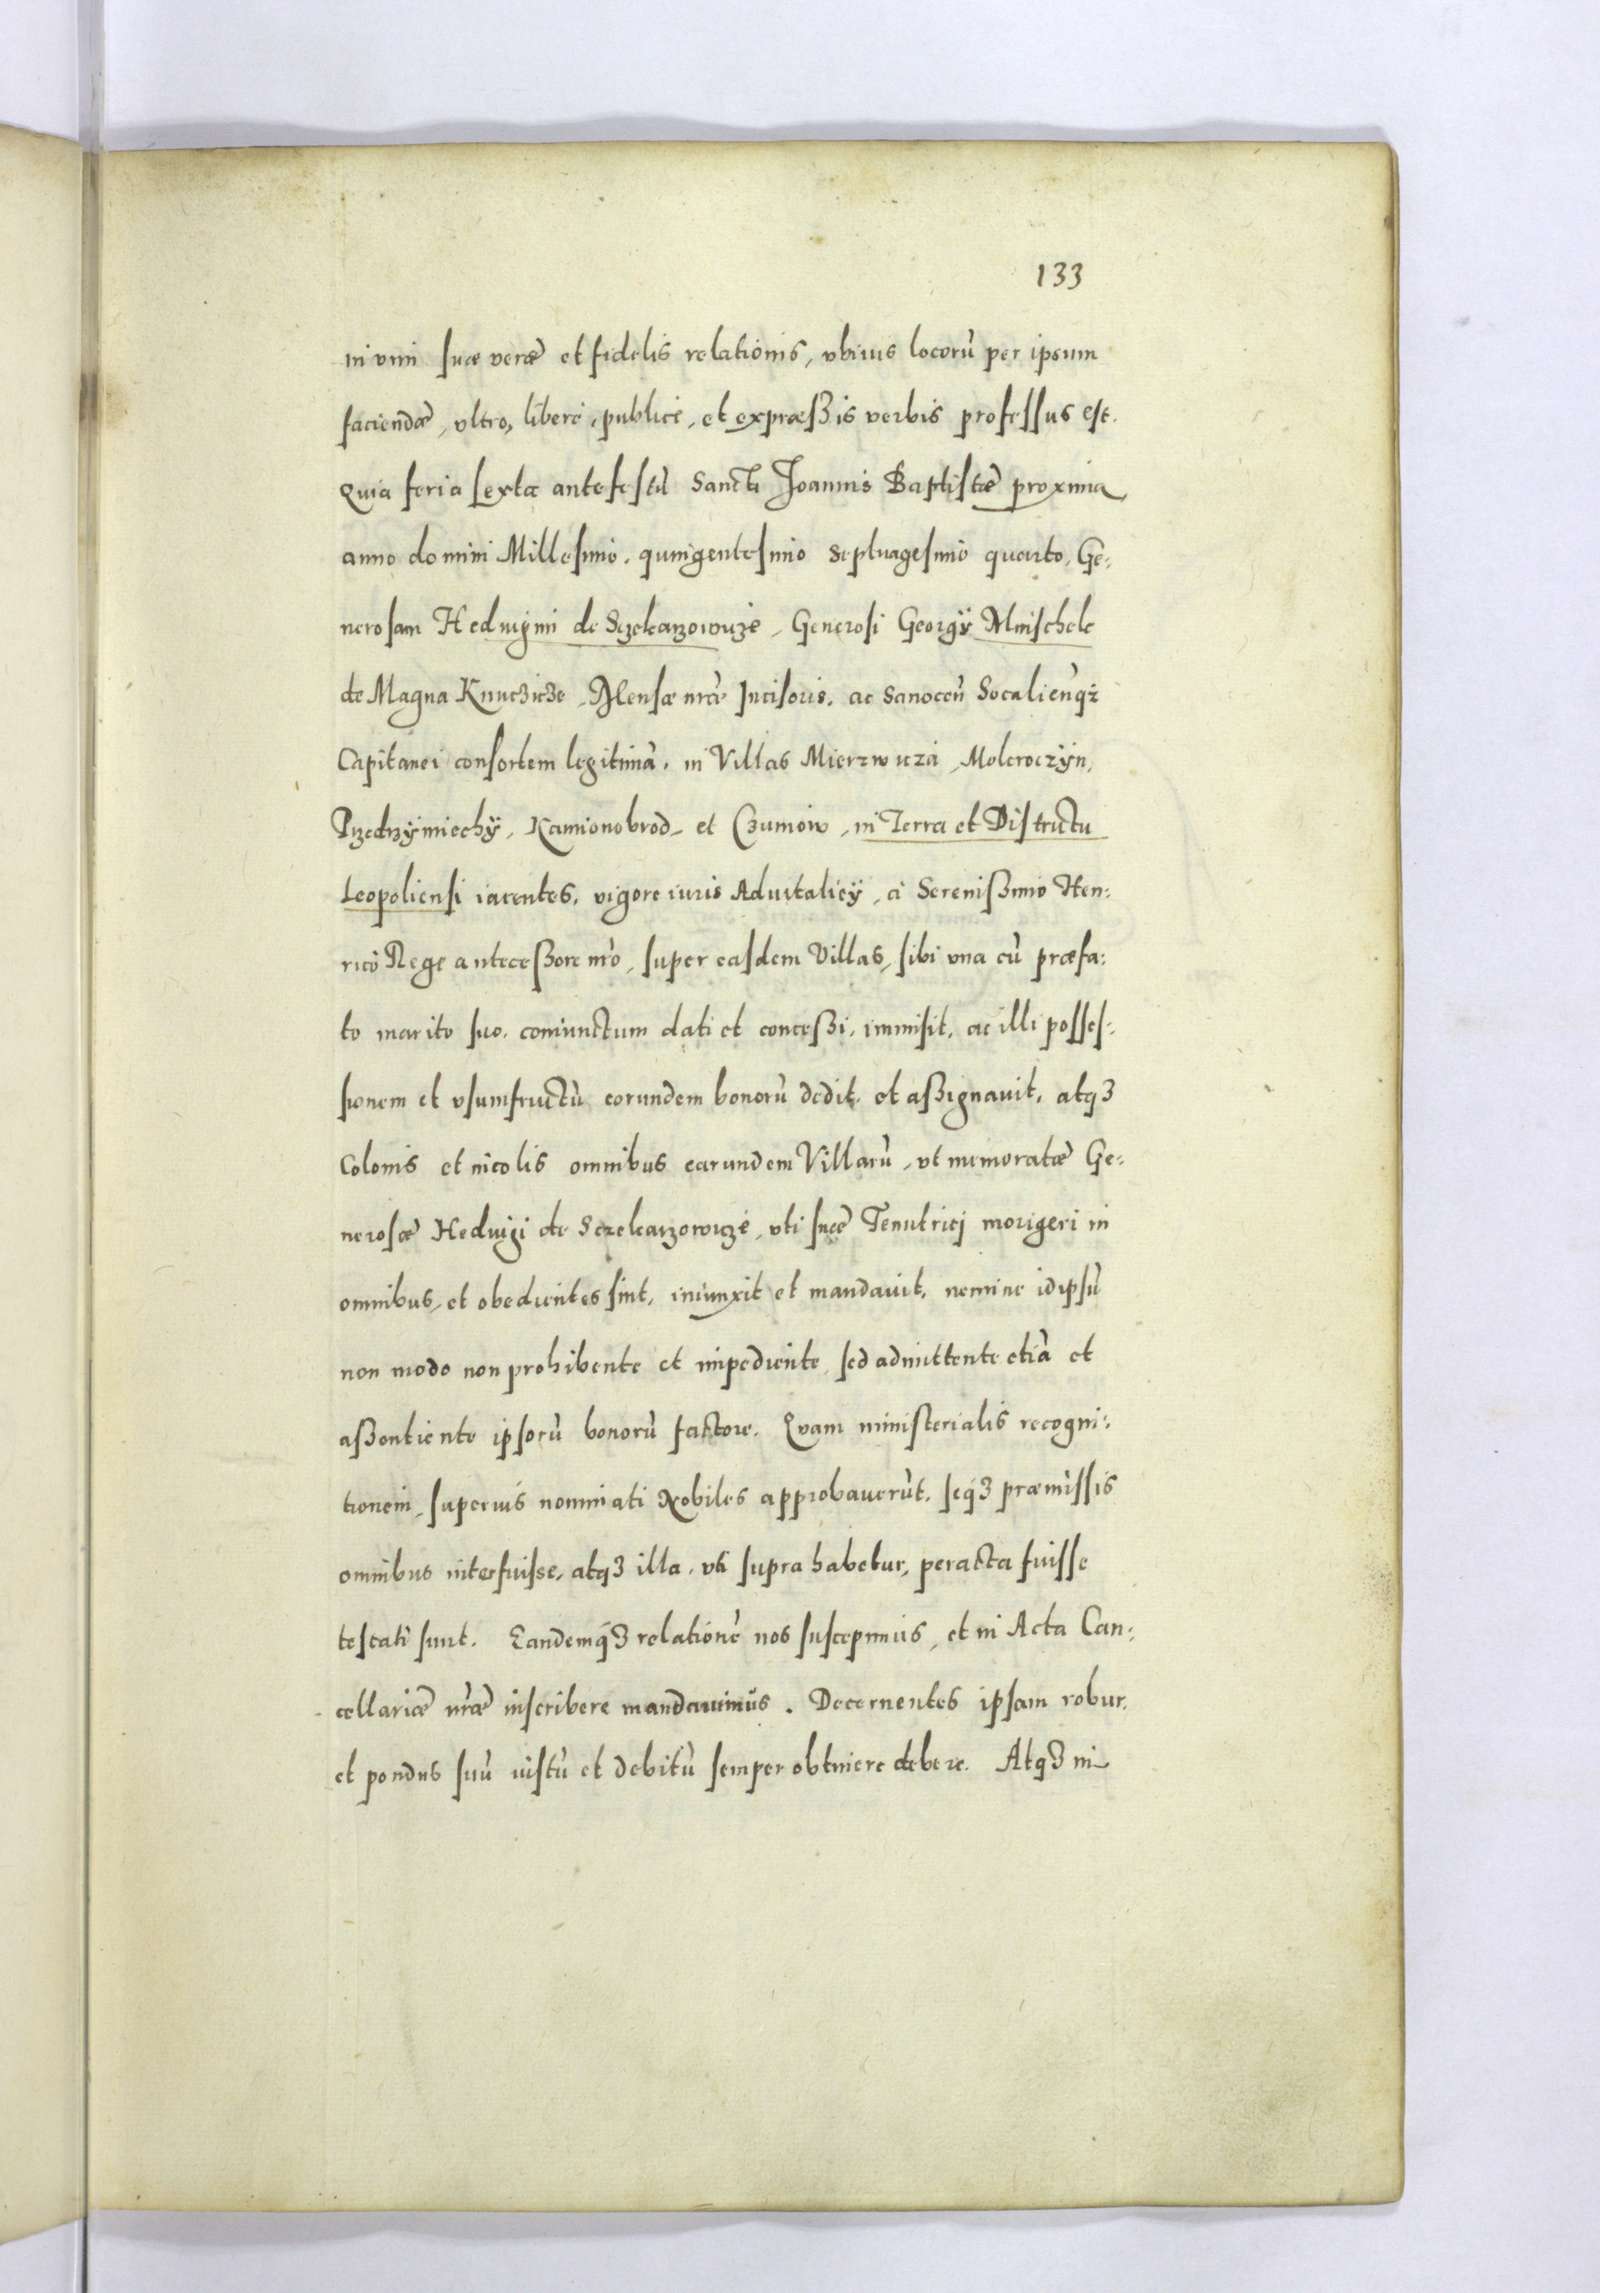 133
in vim suæ veræ et fidelis relationis, vbiuis locorũ per ipsum
faciendæ, vltro, liberè, publicè, et expræßis verbis professus est.
Quia feria sexta ante festũ Sancti Joannis Baptistæ proxima
anno domini Millesimo, quingentesimo septuagesimo quarto, Ge:
nerosam Heduigim de Szekarzowicze, Generosi Georgÿ Mnischek
de Magna Knuczicze, Mensæ nr̃æ Incisoris, ac Sanoceñ Socalieñq3
Capitanei consortem legitimã, in Villas Mierzwicza, Mokroczÿn,
Przedrzÿmiechÿ, Kamionobrod, et Czumow, in Terra et Districtu
Leopoliensi iacentes, vigore iuris Aduitalicÿ, à Serenißimo Hen:
rico Rege anteceßore nr̃o, super easdem Villas, sibi vna cũ præfa:
to marito suo, coniunctum dati et conceßi, immisit, ac illi posses:
sionem et vsumfructũ eorundem bonorũ dedit et aßignauit, atq3
Colonis et incolis omnibus earundem Villarũ, vt memoratæ Ge:
nerosæ Heduigi de Szekarzowicze, vti suæ Tenutrici morigeri in
omnibus, et obedientes sint, iniunxit et mandauit, nemine idipsũ
non modo non prohibente et impediente, sed admittente etiã et
aßentiente ipsorũ bonorũ factore. Quam ministerialis recogni:
tionem, superius nominati Nobiles approbauerũt, seq3 præmissis
omnibus interfuisse, atq3 illa, vti supra habetur, peracta fuisse
testati sunt. Eandemq3 relationẽ nos suscepimus, et in Acta Can:
cellariæ nr̃æ inscribere mandauimus. Decernentes ipsam robur,
et pondus suũ iustũ et debitũ semper obtinere debere. Atq3 in